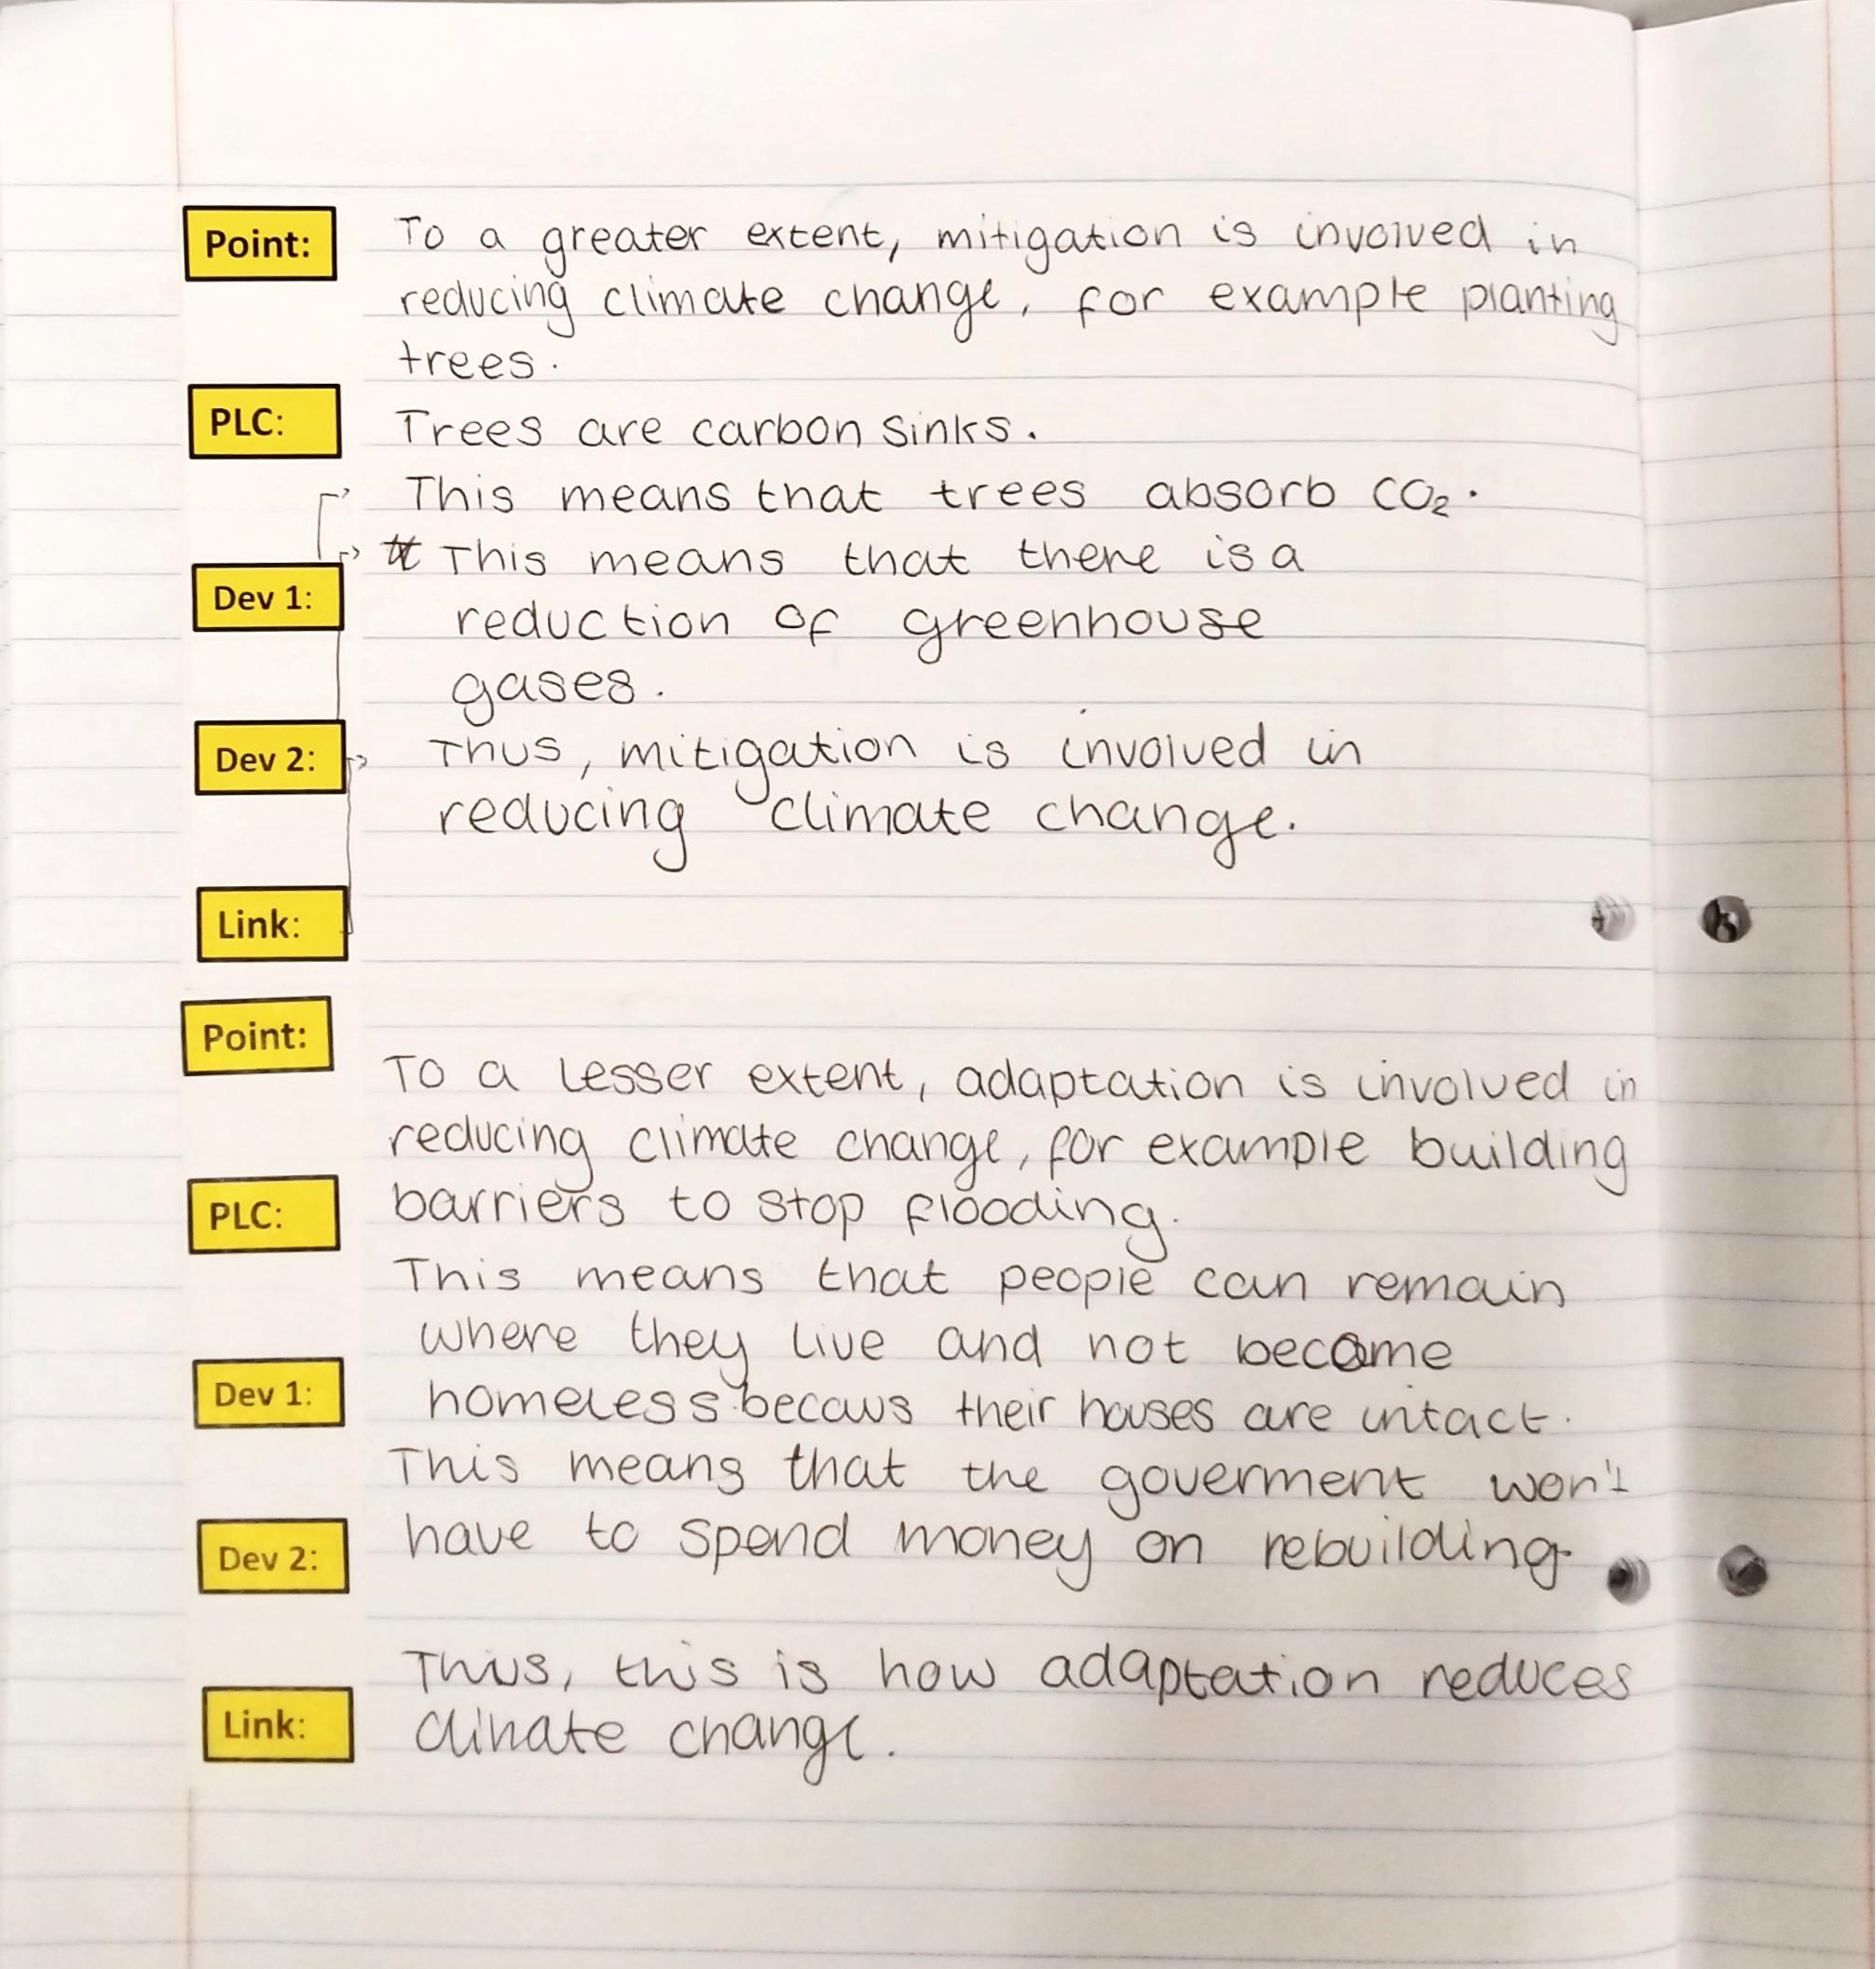 Point: To a greater extent, mitigation is involved in
reducing climate change, for example planting
trees.
PLC: Trees are carbon sinks.
This means that trees absorb CO₂.
This means that there is a
Dev 1:
reduction of greenhouse
gases.
Dev 2: Thus, mitigation is involved in
reducing climate change.
Link:
Point:
To a lesser extent, adaptation is involved in
reducing climate change, for example building
PLC: barriers to stop flooding.
This means that people can remain
where they live and not become
Dev 1: homeless becaus their houses are intact.
This means that the goverment won't
have to spend money on rebuilding.
Dev 2:
Thus, this is how adaptation reduces
Link: climate change.